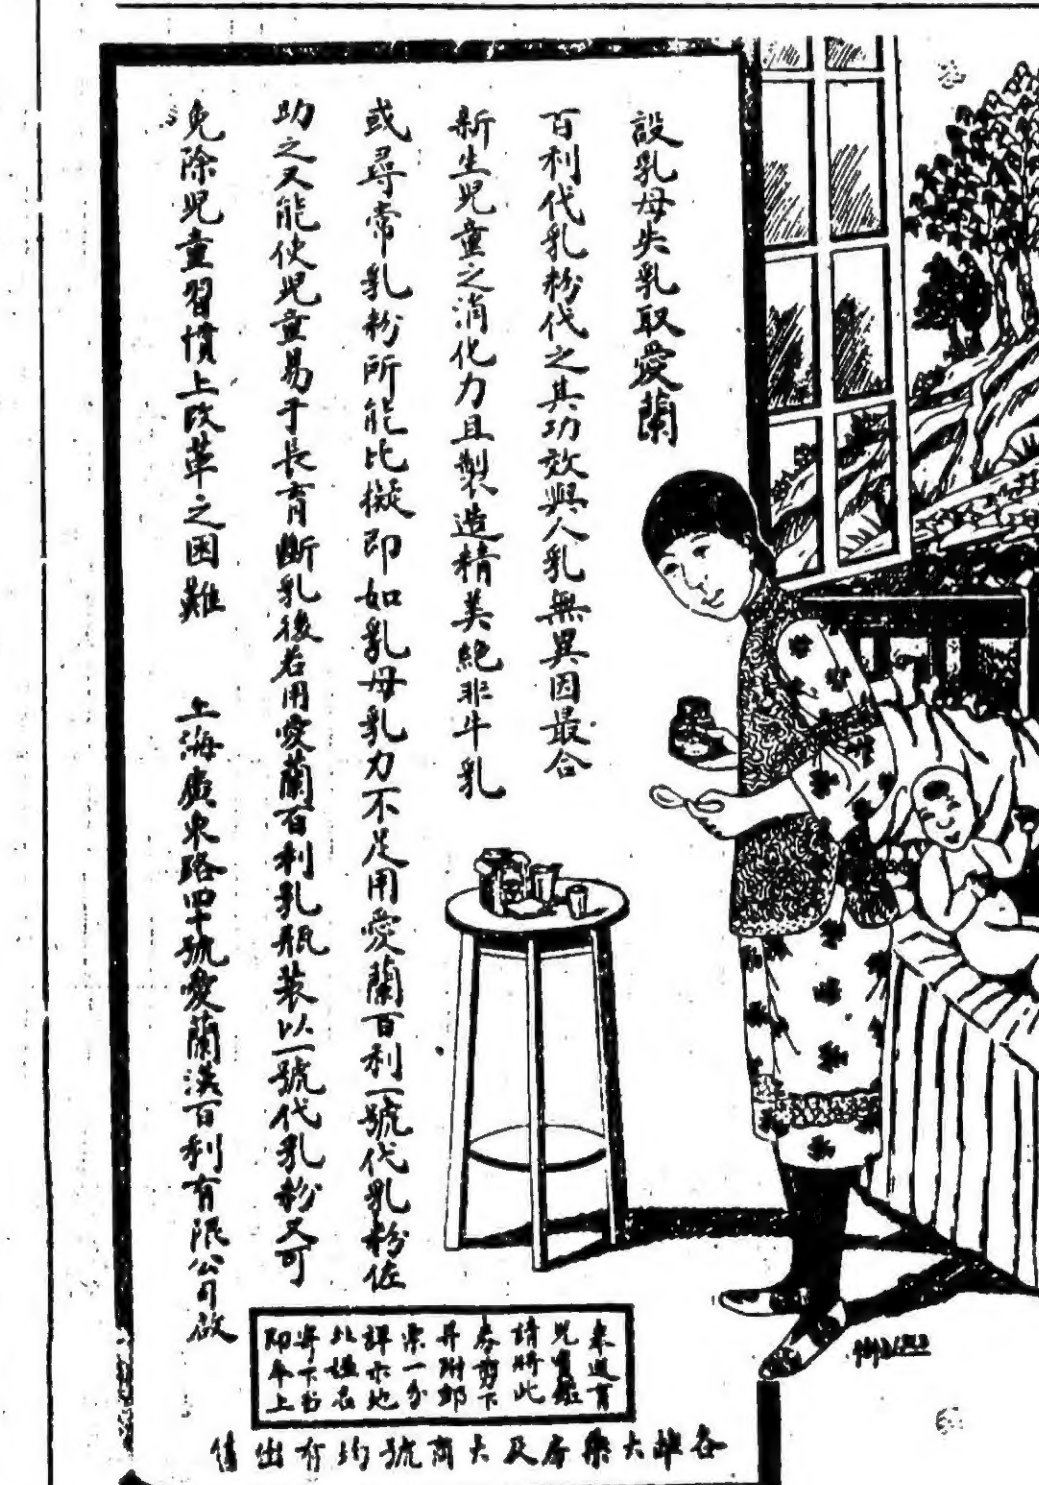 設乳母失乳取愛蘭
百利代乳粉代之其功效與人乳無異因最合
新生兒童之消化力且製造精美絶非牛乳
或尋常乳粉所能比擬即如乳母乳力不足用愛蘭百利一號代乳粉佐
助之又能使兒童易于長育斷乳後若用愛蘭百利乳瓶裝以一號代乳粉又可
免除兒童習慣上改革之困難
上海廣東路四十號愛蘭漢百利有限公司啟
請將此
券剪下
并附郵
票一分
詳示地
址姓名
寄下書
即奉上
各雜大藥房及大商號均有出售